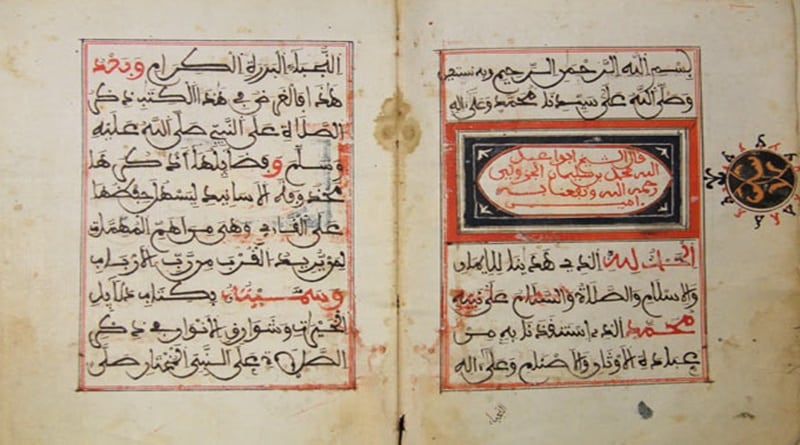 بسم الله الرحمن الرحيم وبه نستعين
وصلى الله على سيدنا محمد وعلى اله
قال الشيخ ابو عبد
الله محمد بن سليمان الجزولي
رحمه الله ونفعنا به
امين
الحمد لله الذي هدينا للايمان
والاسلام والصلاة والسلام على نبيه
محمد الذي استنقذنا به من
عبادة الاوثان والاصنام وعلى اله
النجباء البررة الكرام وبعد
هذا فالغرض في هذا الكتب ذكر
الصلاة على النبي صلى الله عليه
وسلم وفضايلها نذكرها
محذوفة الاسانيد ليسهل حفضها
على القارئ وهي من اهم المهمات
لمن يريد القرب من رب الارباب
وسميته بكتاب دلايل
الخيرات وشوارق الانوار في ذكر
الصلاة على النبي المختار صلى